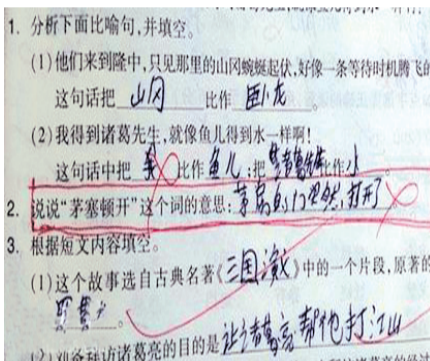 1. 分析下面比喻句,并填空。
(1)他们来到隆中,只见那里的山冈蜿蜒起伏,好像一条等待时机腾飞的
这句话把 山冈 比作 卧龙 。
(2)我得到诸葛先生,就像鱼儿得到水一样啊!
这句话中把 比作 鱼儿 ;把 诸葛先生 比作
2. 说说“茅塞顿开”这个词的意思: 茅房的门突然打开了
3. 根据短文内容填空。
(1)这个故事选自古典名著《三国演义》中的一个片段,原著的
。
(2)刘备拜访诸葛亮的目的是 让诸葛亮帮他打江山